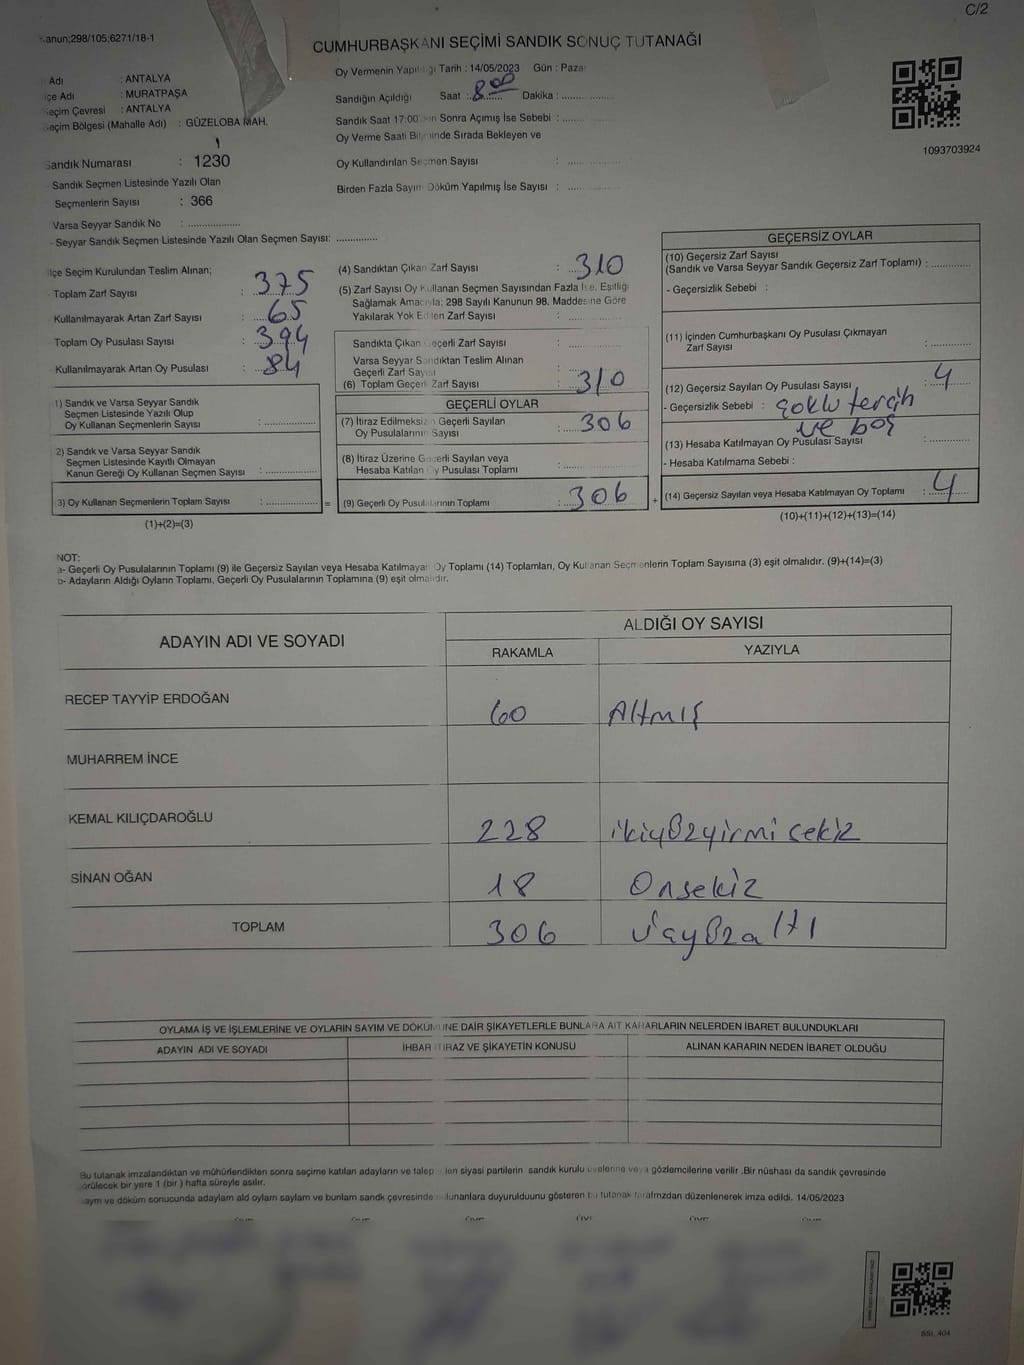 C/2
Kanun;298/105;6271/18-1
CUMHURBAŞKANI SEÇİMİ SANDIK SONUÇ TUTANAĞI
Adı : ANTALYA
İlçe Adı : MURATPAŞA
Seçim Çevresi : ANTALYA
Seçim Bölgesi (Mahalle Adı) : GÜZELOBA MAH.
Sandık Numarası : 1230
Sandık Seçmen Listesinde Yazılı Olan
Seçmenlerin Sayısı : 366
Varsa Seyyar Sandık No : ..................
- Seyyar Sandık Seçmen Listesinde Yazılı Olan Seçmen Sayısı: ..............
Oy Vermenin Yapıldığı Tarih : 14/05/2023 Gün : Pazar
Sandığın Açıldığı Saat : 8.00 Dakika : ..............
Sandık Saat 17:00'den Sonra Açımış İse Sebebi : ..............
Oy Verme Saati Bitiminde Sırada Bekleyen ve
Oy Kullandırılan Seçmen Sayısı : ..............
Birden Fazla Sayım Döküm Yapılmış İse Sayısı : ..............
1093703924
İlçe Seçim Kurulundan Teslim Alınan;
Toplam Zarf Sayısı : 375
Kullanılmayarak Artan Zarf Sayısı : 65
Toplam Oy Pusulası Sayısı : 394
Kullanılmayarak Artan Oy Pusulası : 84
1) Sandık ve Varsa Seyyar Sandık
Seçmen Listesinde Yazılı Olup
Oy Kullanan Seçmenlerin Sayısı : ..............
2) Sandık ve Varsa Seyyar Sandık
Seçmen Listesinde Kayıtlı Olmayan
Kanun Gereği Oy Kullanan Seçmen Sayısı : ..............
3) Oy Kullanan Seçmenlerin Toplam Sayısı : .............. =
(1)+(2)=(3)
(4) Sandıktan Çıkan Zarf Sayısı : 310
(5) Zarf Sayısı Oy Kullanan Seçmen Sayısından Fazla İse, Eşitliği
Sağlamak Amacıyla; 298 Sayılı Kanunun 98. Maddesine Göre
Yakılarak Yok Edilen Zarf Sayısı : ..............
Sandıkta Çıkan Geçerli Zarf Sayısı : ..............
Varsa Seyyar Sandıktan Teslim Alınan
Geçerli Zarf Sayısı : ..............
(6) Toplam Geçerli Zarf Sayısı : 310
GEÇERLİ OYLAR
(7) İtiraz Edilmeksizin Geçerli Sayılan
Oy Pusulalarının Sayısı : 306
(8) İtiraz Üzerine Geçerli Sayılan veya
Hesaba Katılan Oy Pusulası Toplamı : ..............
(9) Geçerli Oy Pusulalarının Toplamı : 306 +
GEÇERSİZ OYLAR
(10) Geçersiz Zarf Sayısı
(Sandık ve Varsa Seyyar Sandık Geçersiz Zarf Toplamı) : ..............
- Geçersizlik Sebebi :
(11) İçinden Cumhurbaşkanı Oy Pusulası Çıkmayan
Zarf Sayısı : ..............
(12) Geçersiz Sayılan Oy Pusulası Sayısı : 4
- Geçersizlik Sebebi : çoklu tercih
ve boş
(13) Hesaba Katılmayan Oy Pusulası Sayısı : ..............
- Hesaba Katılmama Sebebi :
(14) Geçersiz Sayılan veya Hesaba Katılmayan Oy Toplamı : 4
(10)+(11)+(12)+(13)=(14)
NOT:
a- Geçerli Oy Pusulalarının Toplamı (9) ile Geçersiz Sayılan veya Hesaba Katılmayan Oy Toplamı (14) Toplamları, Oy Kullanan Seçmenlerin Toplam Sayısına (3) eşit olmalıdır. (9)+(14)=(3)
b- Adayların Aldığı Oyların Toplamı, Geçerli Oy Pusulalarının Toplamına (9) eşit olmalıdır.
ADAYIN ADI VE SOYADI ALDIĞI OY SAYISI
RAKAMLA YAZIYLA
RECEP TAYYİP ERDOĞAN 60 Altmış
MUHARREM İNCE
KEMAL KILIÇDAROĞLU 228 ikiyüzyirmi sekiz
SİNAN OĞAN 18 Onsekiz
TOPLAM 306 üçyüzaltı
OYLAMA İŞ VE İŞLEMLERİNE VE OYLARIN SAYIM VE DÖKÜMÜNE DAİR ŞİKAYETLERLE BUNLARA AİT KARARLARIN NELERDEN İBARET BULUNDUKLARI
ADAYIN ADI VE SOYADI İHBAR İTİRAZ VE ŞİKAYETİN KONUSU ALINAN KARARIN NEDEN İBARET OLDUĞU
Bu tutanak imzalandıktan ve mühürlendikten sonra seçime katılan adayların ve talep eden siyasi partilerin sandık kurulu üyelerine veya gözlemcilerine verilir .Bir nüshası da sandık çevresinde
görülecek bir yere 1 (bir ) hafta süreyle asılır.
Sayım ve döküm sonucunda adaylam ald oylam saylam ve bunlam sandk çevresinde bulunanlara duyurulduunu gösteren bu tutanak tarafmzdan düzenlenerek imza edildi. 14/05/2023